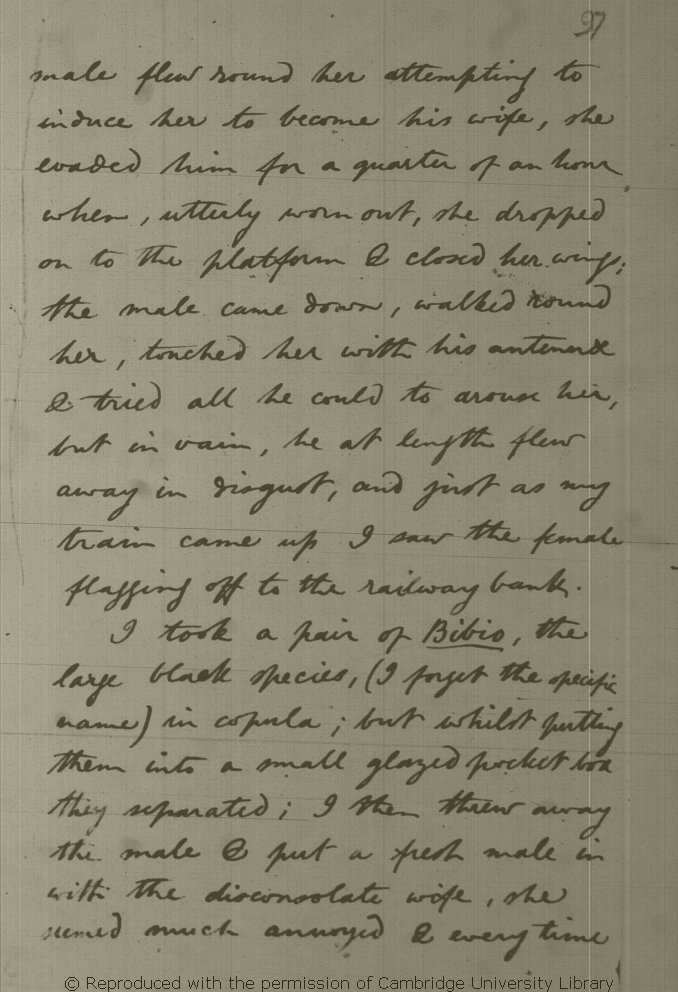 97
male flew round her attempting to
induce her to become his wife, she
evaded him for a quarter of an hour
when, utterly worn out, she dropped
on to the platform & closed her wings;
the male came down, walked round
her, touched her with his antennæ
& tried all he could to arouse her,
but in vain, he at length flew
away in disgust, and just as my
train came up I saw the female
flagging off to the railway bank.
I took a pair of Bibio, the
large black species, (I forget the specific
name) in copula; but whilst putting
them into a small glazed pocket box
they separated; I then threw away
the male & put a fresh male in
with the disconsolate wife, she
seemed much annoyed & every time
© Reproduced with the permission of Cambridge University Library